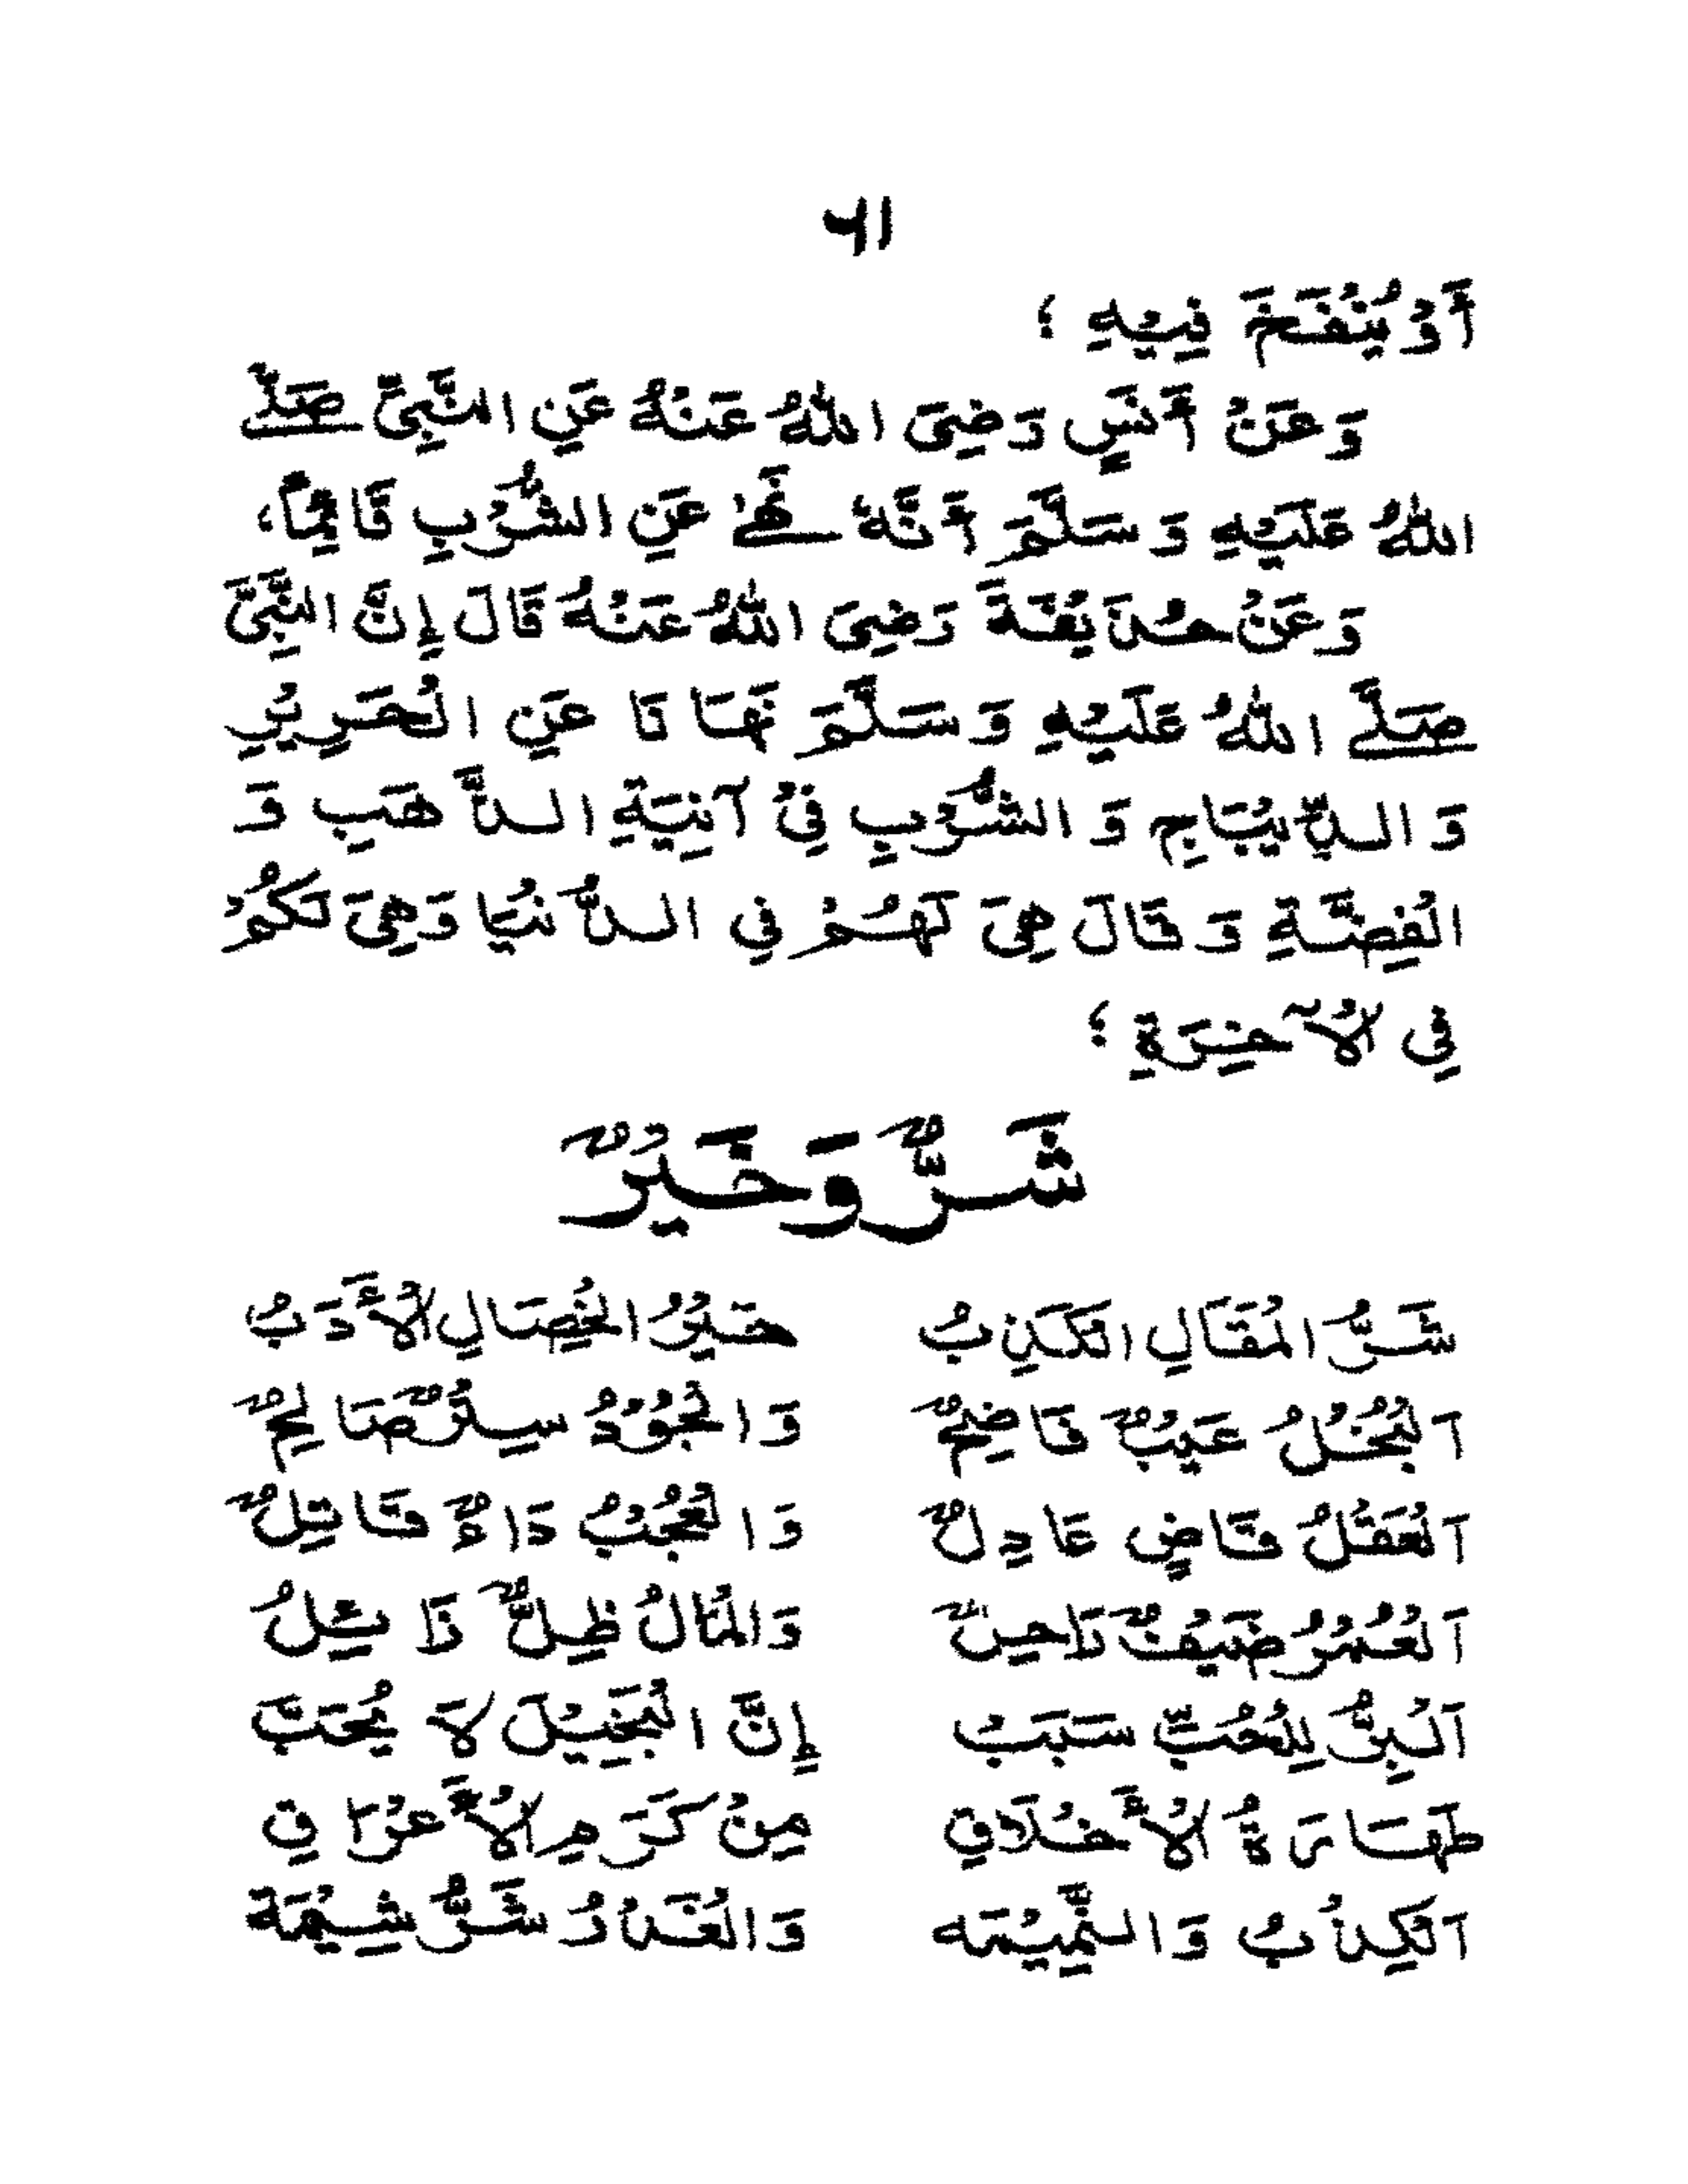 ٦١
أَوْ يُنْفَخَ فِيْهِ ؛
وَعَنْ أَنَسٍ رَضِيَ اللهُ عَنْهُ عَنِ النَّبِيِّ صَلَّى
اللهُ عَلَيْهِ وَسَلَّمَ أَنَّهُ نَهَى عَنِ الشُّرْبِ قَائِماً،
وَعَنْ حُذَيْفَةَ رَضِيَ اللهُ عَنْهُ قَالَ إِنَّ النَّبِيَّ
صَلَّى اللهُ عَلَيْهِ وَسَلَّمَ نَهَانَا عَنِ الْحَرِيْرِ
وَالدِّيْبَاجِ وَالشُّرْبِ فِيْ آنِيَةِ الذَّهَبِ وَ
الْفِضَّةِ وَقَالَ هِيَ لَهُمْ فِي الدُّنْيَا وَهِيَ لَكُمْ
فِي الْآخِرَةِ ؛
شَرٌّ وَخَيْرٌ
شَرُّ الْمَقَالِ الْكَذِبُ خَيْرُ الْخِصَالِ الْأَدَبُ
اَلْبُخْلُ عَيْبٌ فَاضِحٌ وَالْجُوْدُ سِتْرٌ صَالِحٌ
اَلْعَقْلُ قَاضٍ عَادِلٌ وَالْعُجْبُ دَاءٌ قَاتِلٌ
اَلْعُمْرُ ضَيْفٌ رَاحِلٌ وَالْمَالُ ظِلٌّ زَائِلُ
اَلْبِرُّ لِلْحُبِّ سَبَبُ إِنَّ الْبَخِيْلَ لَا يُحَبَّ
طَهَارَةُ الْأَخْلَاقِ مِنْ كَرَمِ الْأَعْرَاقِ
اَلْكِذْبُ وَالنَّمِيْمَه وَالْغَدْرُ شَرُّ شِيْمَة